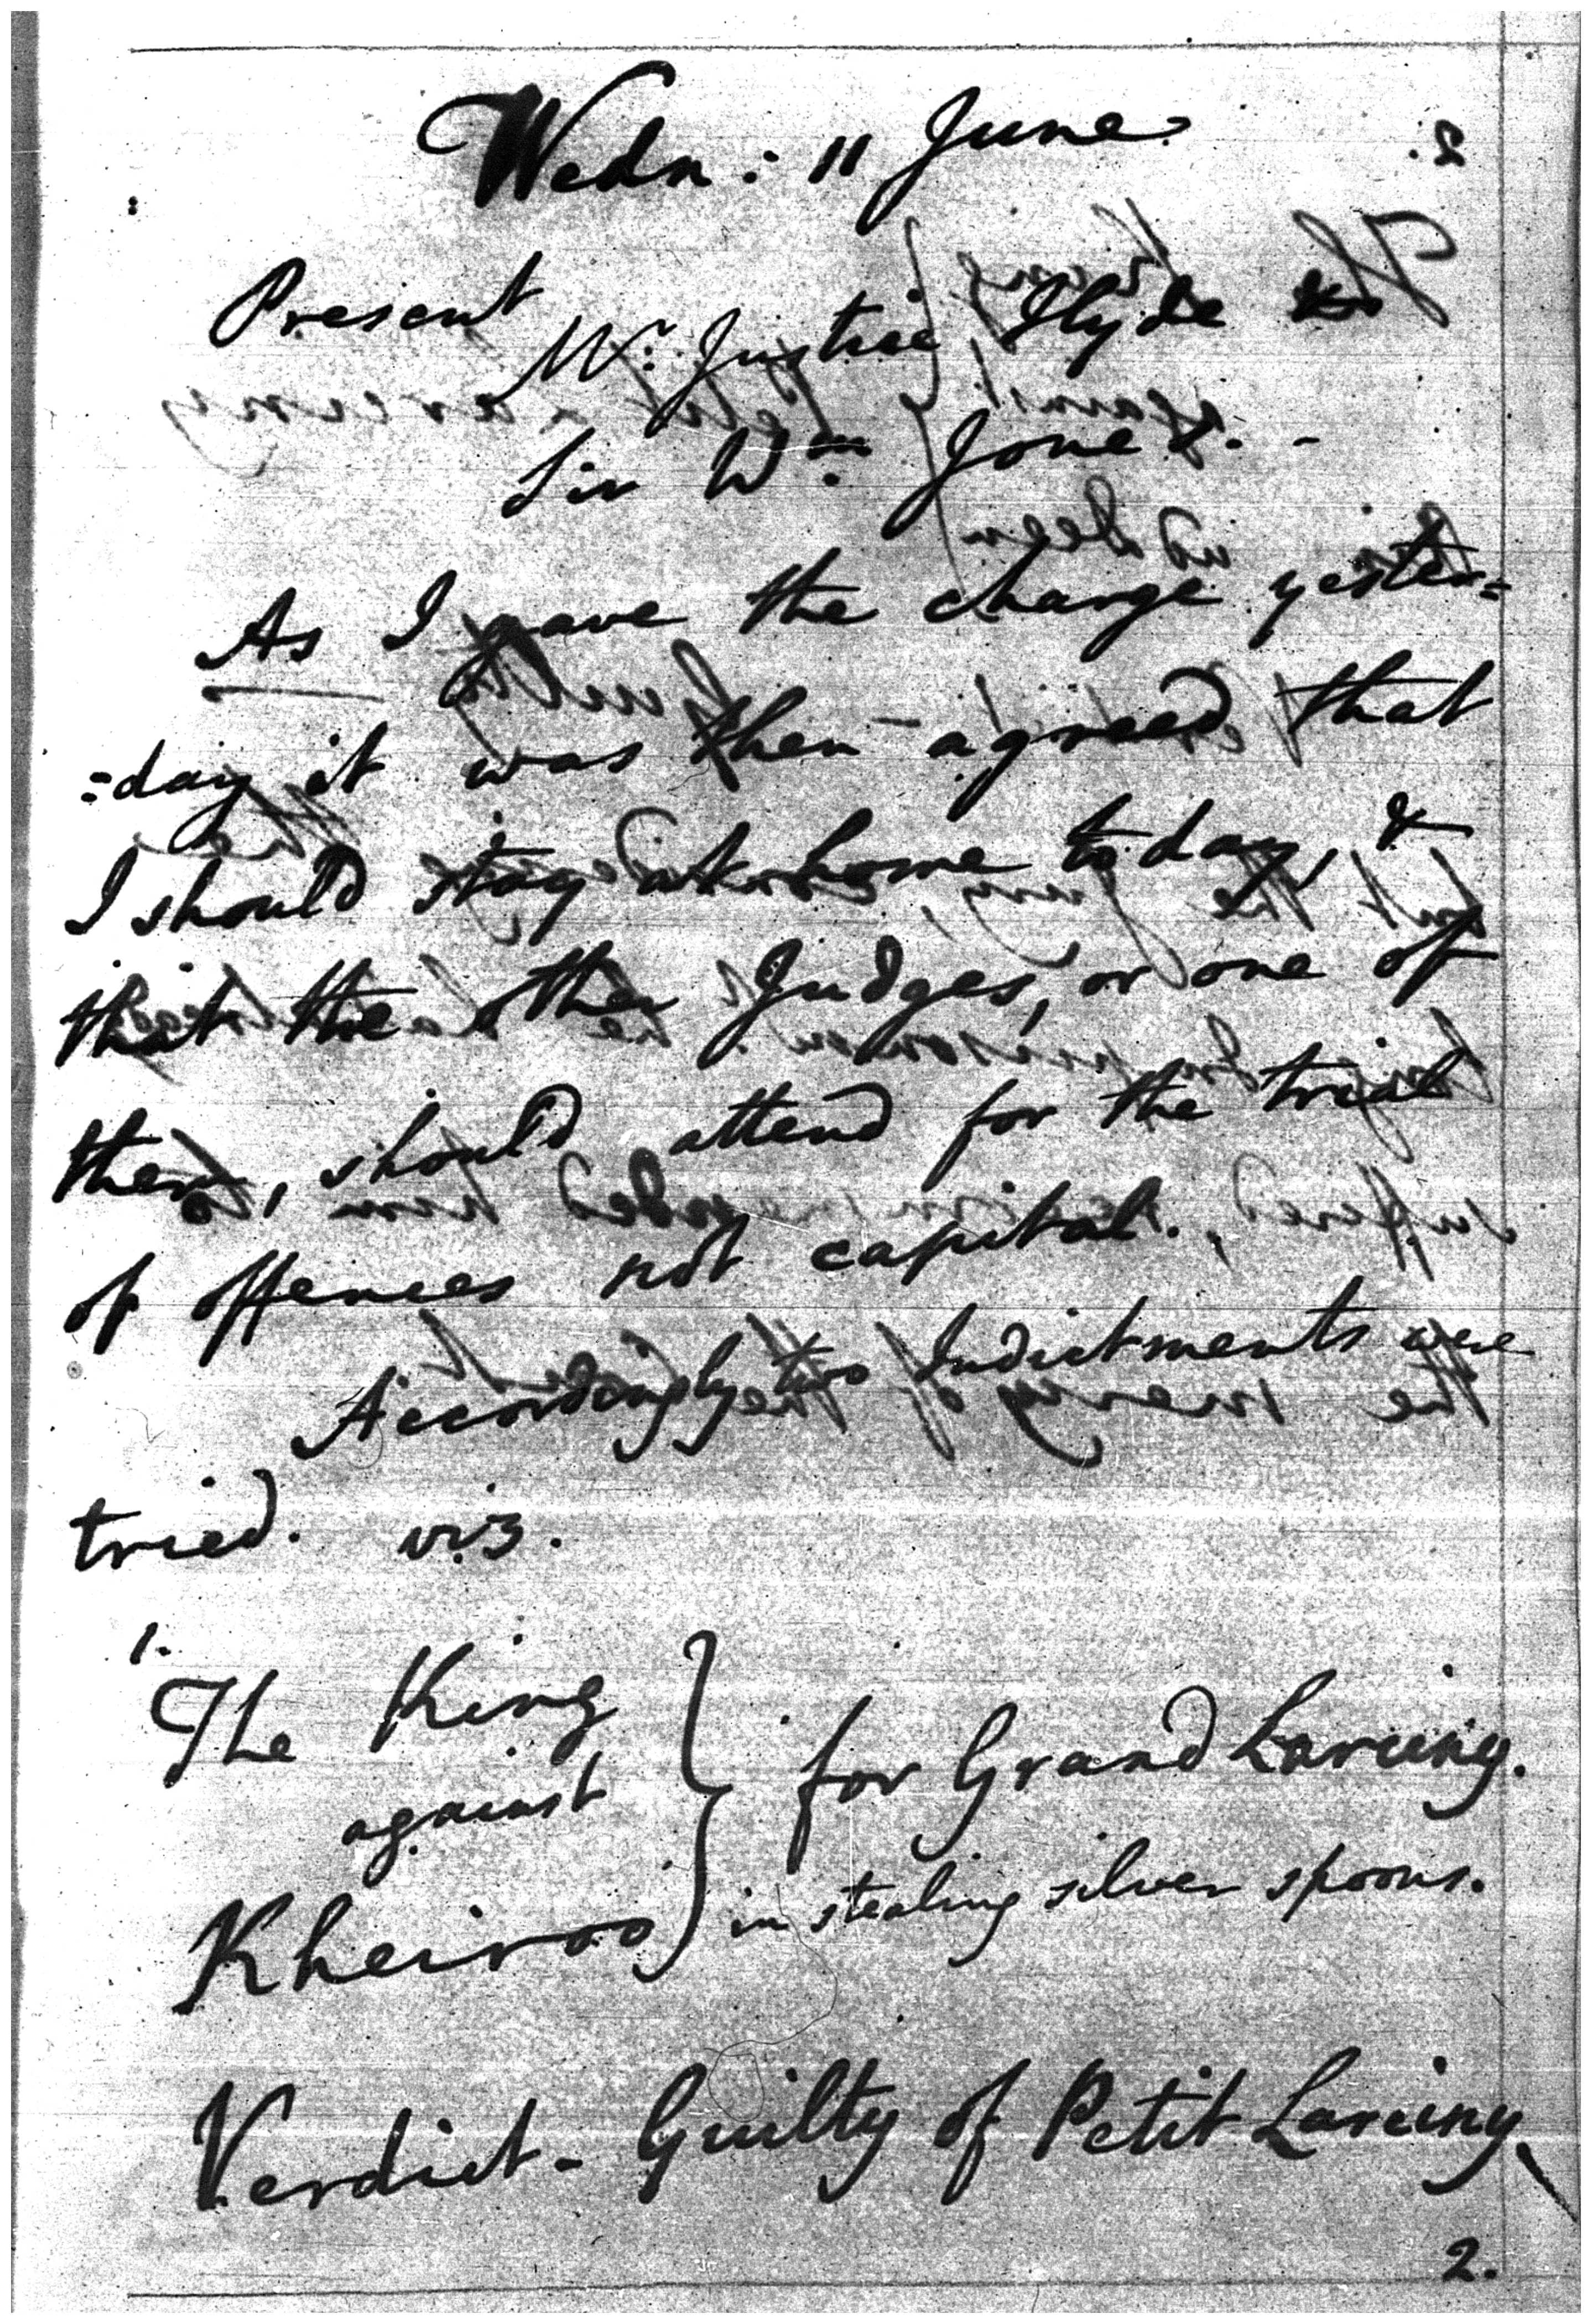 Wedn: 11 June
Present
Mr. Justice Hyde &
Sir Wm. Jones. -
As I gave the charge yester=
=day it was then agreed that
I should stay at home to day, &
that the other Judges, or one of
them, should attend for the trial
of offences not capital.
Accordingly two Indictments were
tried. viz.
1.
The King
against
Kheiroo
for Grand Larceny.
in stealing silver spoons.
Verdict - Guilty of Petit Larceny
2.